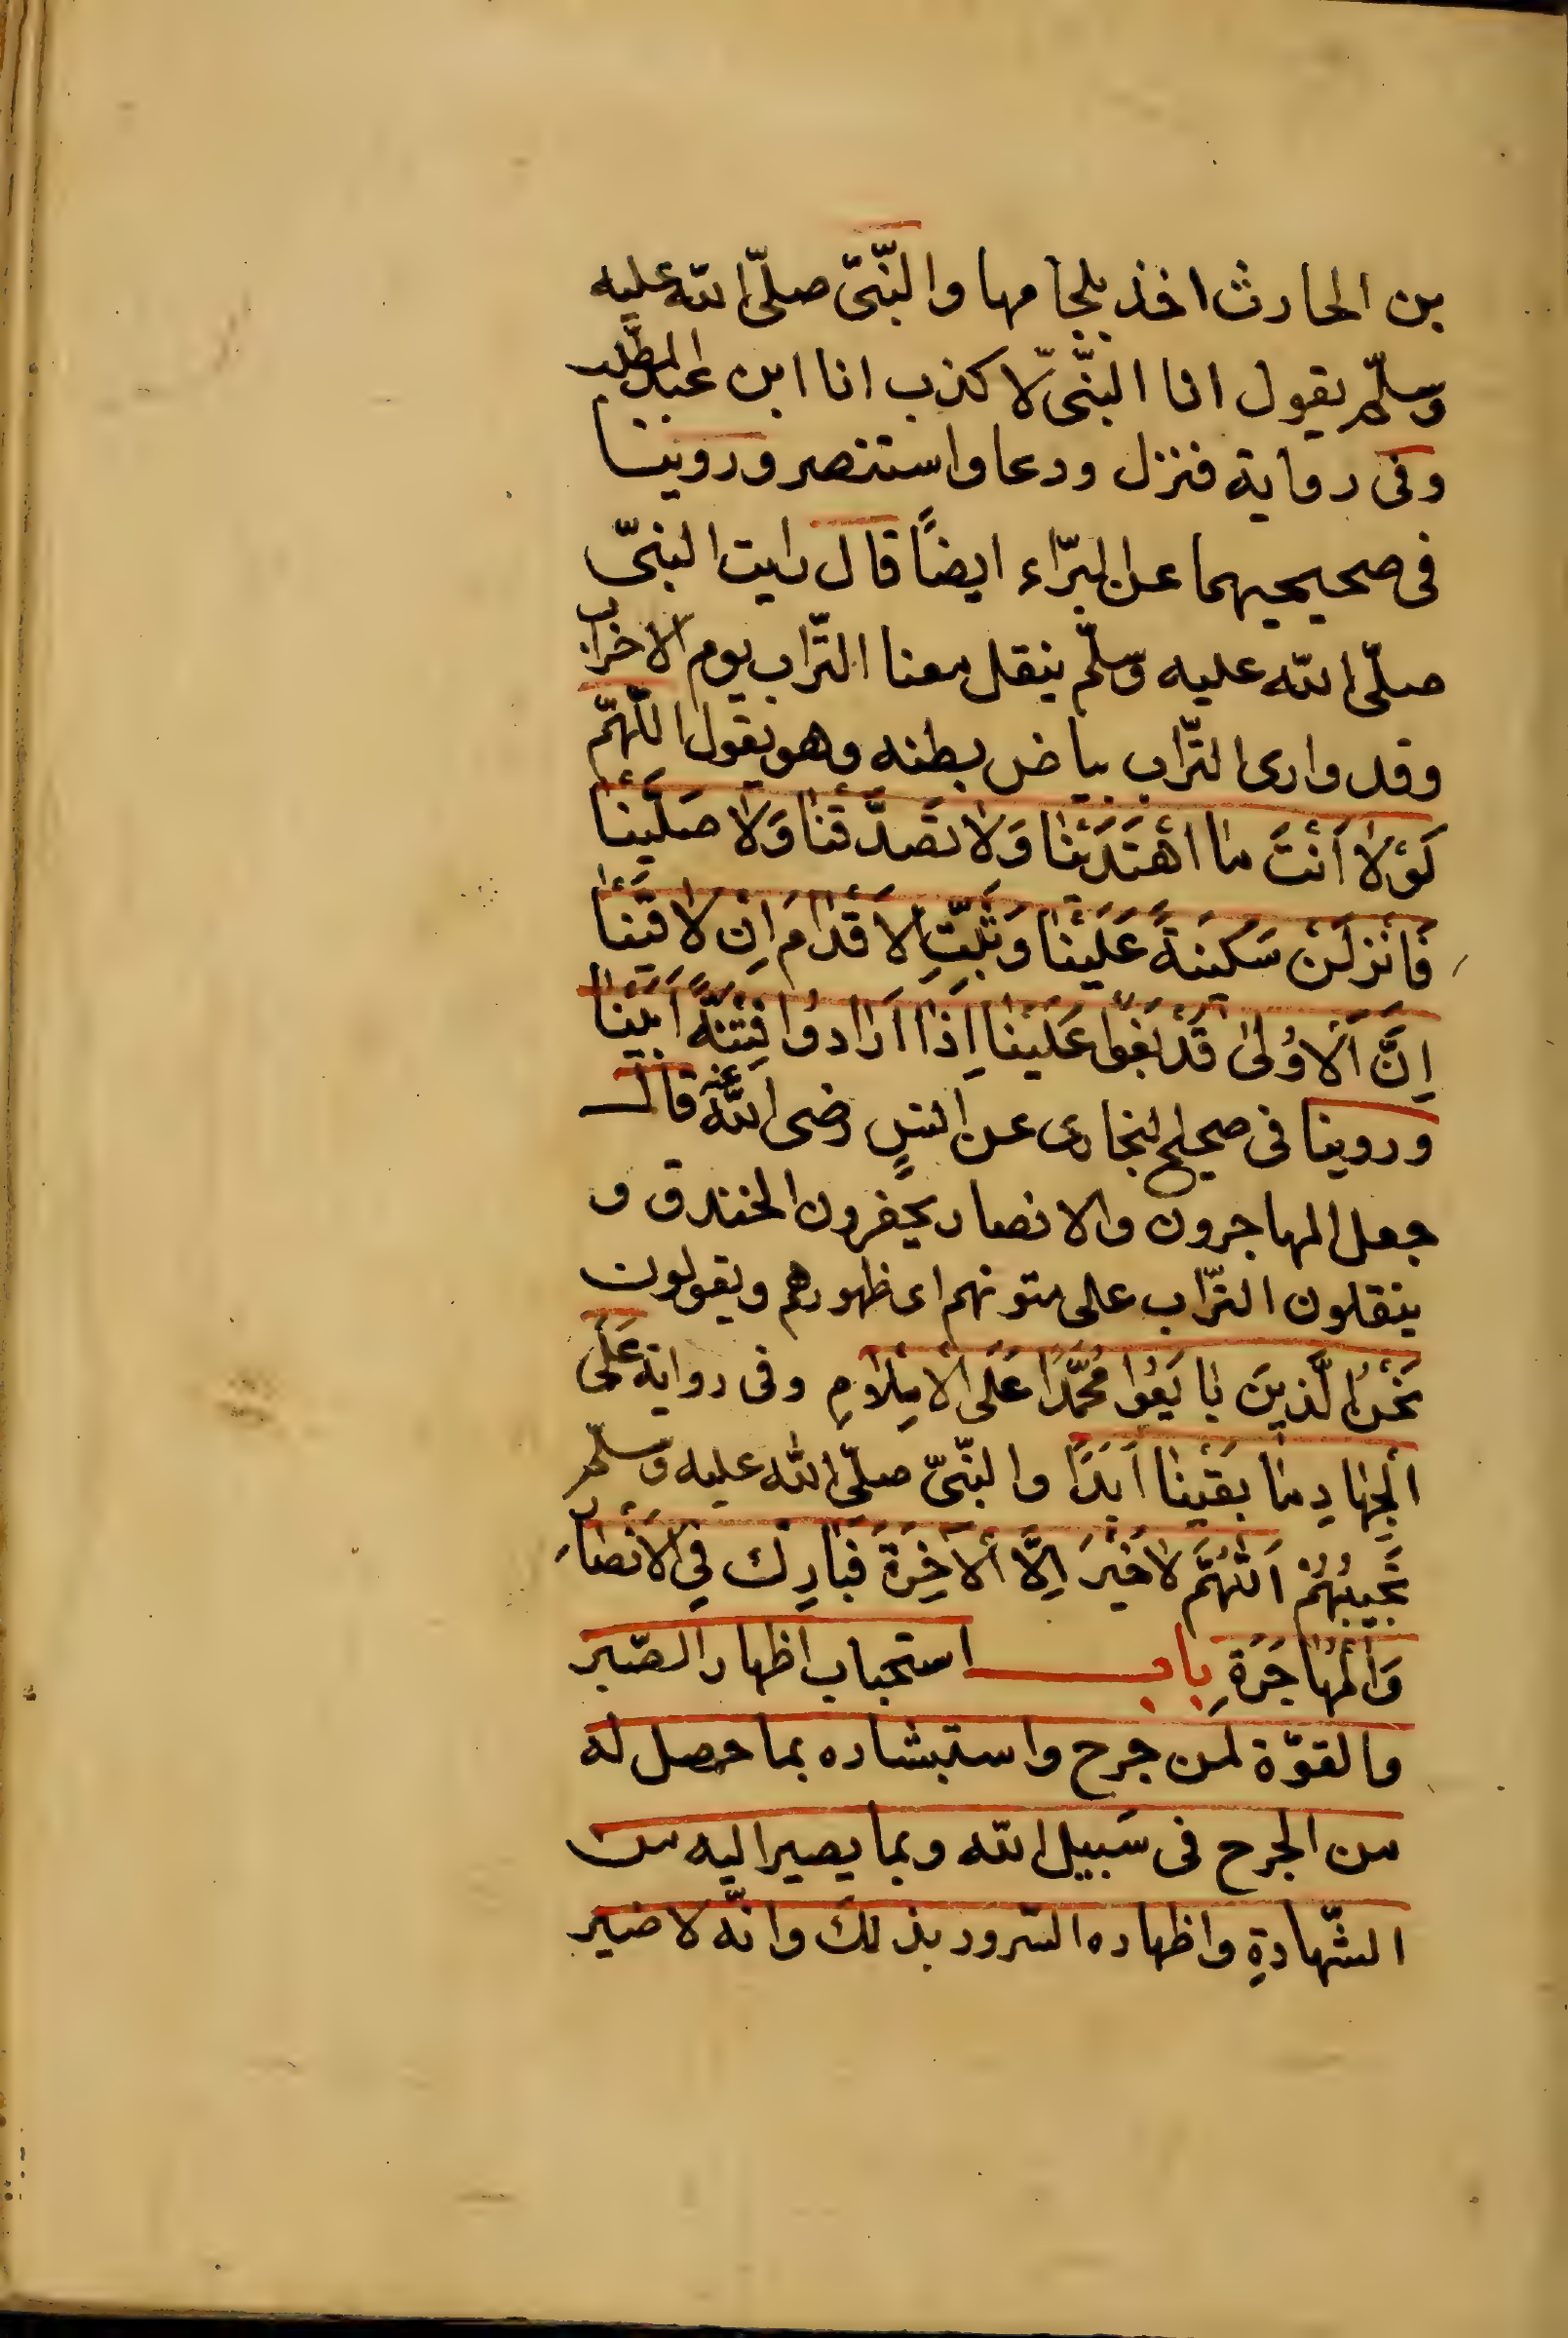 بن الحارث اخذ بلجامها والنّبىّ صلّى الله عليه
وسلّم يقول انا النّبىّ لّا كذب انا ابن عبد المطّلب
وفى رواية فنزل ودعا واستنصر وروينا
فى صحيحيهما عن البرّاء ايضاً قال رايت النبىّ
صلّى الله عليه وسلّم ينقل معنا التّراب يوم الاحزاب
وقد وارى التّراب بياض بطنه وهو يقول اللّهمّ
لَوْلاٰ اَنْتَ مٰا اهْتَدَيْنٰا وَلاٰ تَصَدَّقْنٰا وَلاٰ صَلَّيْنٰا
فَاَنْزِلَنْ سَكينَةً عَلَيْنٰا وَثَبِّتِ الاَقْدٰامَ اِنْ لاٰقَيْنٰا
اِنَّ اَلْاوُلىٰ قَدْ بَغَوْا عَلَيْنٰا اِذٰا اَرٰادوُا فِتْنَةً اَبَيْنٰا
وروينا فى صحيح البخارى عن انسٍ رضى الله عنه قال
جعل المهاجرون والانصار يحفرون الخندق و
ينقلون التّراب على متونهم اى ظهورهم ويقولون
نَحْنُ الَّذينَ بٰايَعُوا مُحَمَّدًا عَلَى الْاِسْلاٰمِ وفى رواية عَلَى
الْجِهٰادِ مٰا بَقينٰا اَبَدًا والنّبىّ صلّى الله عليه وسلّم
يُجيبُهُمْ اَللّٰهُمَّ لاٰ خَيْرَ اِلَّا اَلْآخِرَةَ فَبٰارِكْ فِى الاَنْصٰارِ
وَالْمُهٰاجَرَةِ باب استحباب اظهار الصّبر
والقوّة لمن جرح واستبشاره بما حصل له
من الجرح فى سَبيل الله وبما يصير اليه من
الشّهادةِ واظهاره السّرور بذلك وانّه لا ضير